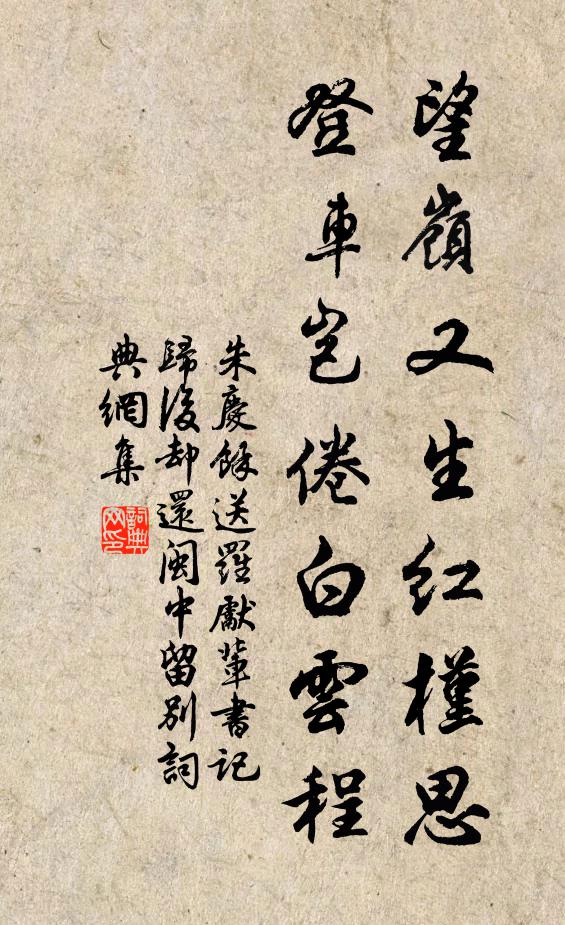 望嶺又生紅槿思
登車豈倦白雲程
朱慶餘送羅獻輩書記
歸後却還閩中留別詞
典網集
詞典
网印